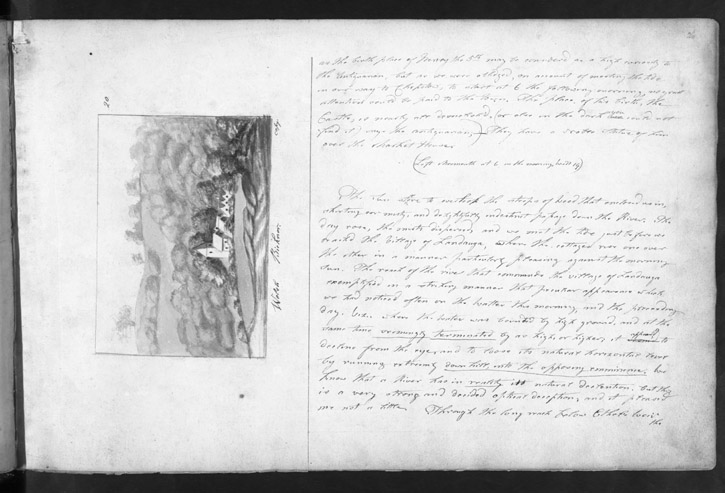 20
Welch Bicknor
as the birth place of Henry the 5th may be considered as a high curiosity to
the Antiquarian, but as we were obliged, on account of meeting the tide
in our way to Chepstow, to set off at 6 the following morning, no great
attention could be paid to the Town. The place of his birth, the
Castle, is nearly all demolished, (or else in the dark we could not
find it) says the antiquarian,) They have a statue of him
over the Market House.
(Left Monmouth at 6 in the morning
The Sun to the steeps of Wood that enclosed us in,
our misty, and delightfully indistinct passage down the River. The
day rose, the mists dispersed, and we met the tide, just before we
reached the Village of Landoga, where the cottages rise one over
the other in a manner particularly pleasing against the morning
Sun. The reach of the river that commands the village of Landoga
exemplifies in a striking manner that peculiar appearance which
we had noticed often on the Water this morning, and the preceeding
day. viz. when the water was bounded by high ground, and at the
same time seemingly terminated by as high or higher, it appears to
decline from the eye, and to loose its natural horizontal level
by running evidently down hill into the opposing eminence; we
know that a River has in reality its natural declination, but this
is a very strong and decided optical deception, and it pleased
me not a little. Through the long reach below
the